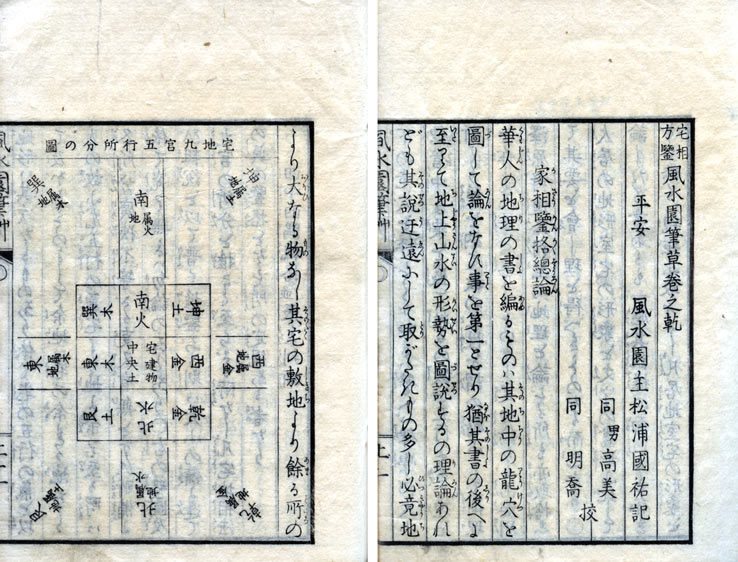 宅相方鑒 風水園筆草卷之乾
平安 風水園主松浦國祐記
同 男高美
同 明喬 校
家相鑒格總論
華人の地理の書を編るものハ其地中の龍穴を
圖して論をかん事を第一とせり猶其書の後へよ
至つて地上山水の形勢を圖說をるの理論あれ
ども其說迂遠ふして取がたきもの多し必竟地
より大なる物なし其宅の敷地より餘る所の
宅地九宮五行所分の圖
坤 地属土
南 地属火
巽 地属木
坤土
南火
巽木
西 地属金
西金
宅建物中央土
東木
東 地属木
乾金
北水
艮土
乾 地属金
北 地属水
艮 地属土
風水園筆草